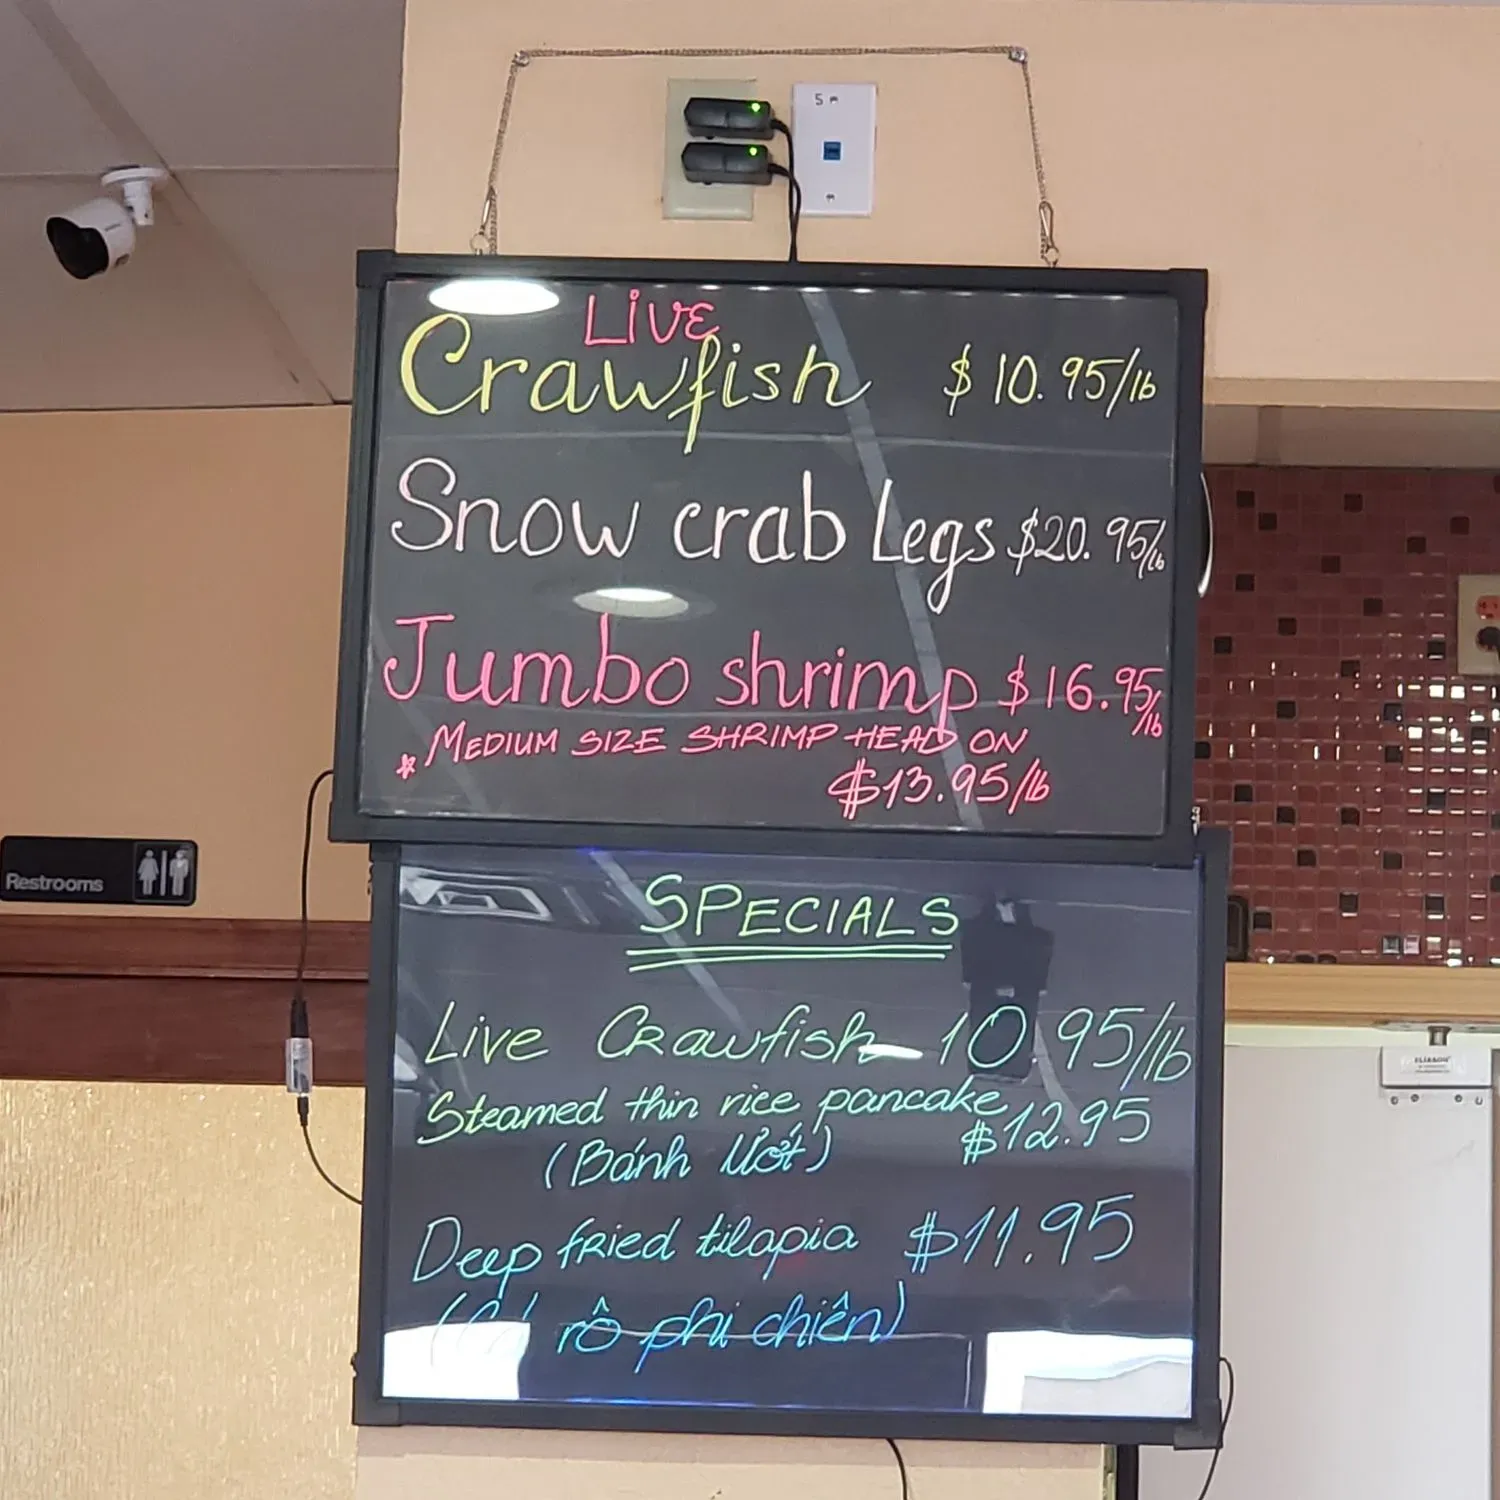 LIVE
Crawfish $10.95/lb
Snow crab Legs $20.95/lb
Jumbo shrimp $16.95/lb
* MEDIUM SIZE SHRIMP HEAD ON
$13.95/lb
Restrooms
SPECIALS
Live Crawfish 10.95/lb
Steamed thin rice pancake $12.95
(Bánh Ướt)
Deep fried tilapia $11.95
(Cá rô phi chiên)
ELIASON